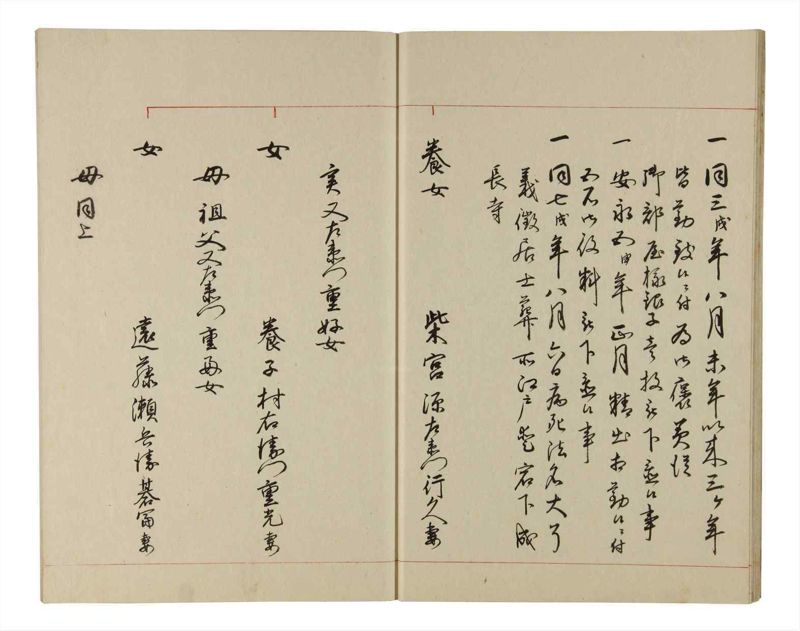 一同三戌年八月未年以来三ヶ年
皆勤致候ニ付為御褒美従
御部屋様銀子壱枚被下置候事
一安永五申年正月精出相勤候ニ付
五石御役料被下置候事
一同七戌年八月六日病死法名大了
義徹居士葬所江戸愛宕下成
長寺
養女 柴宮源左衛門行久妻
実又左衛門重好女
女 養子村右衛門重光妻
母祖父又左衛門重女
女 遠藤瀬兵衛冨妻
母同上